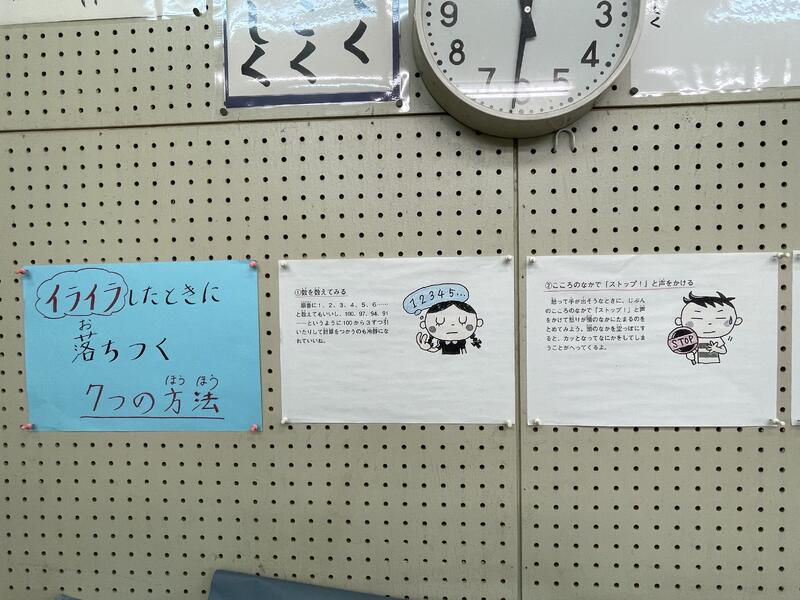 く
く
く
く
く
9
8
7
6
5
4
3
イライラしたときに
お
落ちつく
ほう ほう
7つの方法
①数を数えてみる
順番に1、2、3、4、5、6……
と数えてもいいし、100、97、94、91
……というように100から3ずつ引
いたりして計算をつかうのも冷静にな
れていいね。
12345…
②こころのなかで「ストップ!」と声をかける
怒って手が出そうなときに、じぶん
のこころのなかで「ストップ!」と声
をかけて怒りが頭のなかにたまるのを
とめてみよう。頭のなかを空っぽにす
ると、カッとなってなにかをしてしま
うことがへってくるよ。
STOP